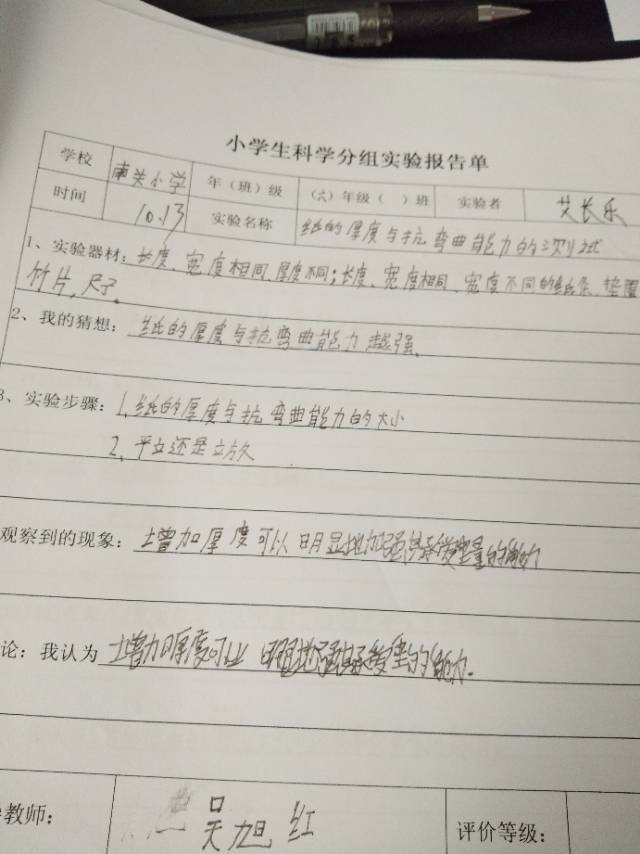 小学生科学分组实验报告单
学校 南关小学 年（班）级 （六）年级（ ）班 实验者 艾长乐
时间 10.13 实验名称 纸的厚度与抗弯曲能力的测试
1、实验器材：长度、宽度相同、厚度不同；长度、宽度相同、宽度不同的纸条、垫圈
竹片，尺子。
2、我的猜想：纸的厚度与抗弯曲能力越强。
3、实验步骤：1、纸的厚度与抗弯曲能力的大小
2、平立还是立放
观察到的现象：增加厚度可以明显地加强承受重量的能力
论：我认为 增加厚度可以明显地强承受重的能力.
教师： 吴旭红 评价等级：